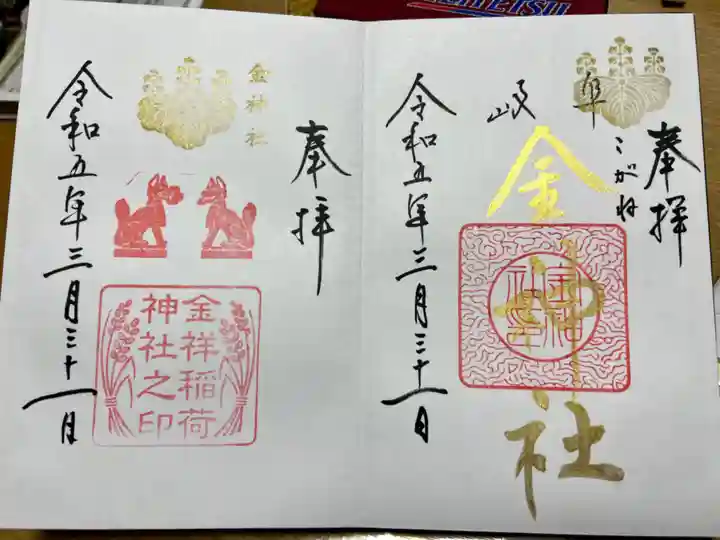 奉拝
こがね
岐阜
金神社
金神社
令和五年三月三十一日
奉拝
金神社
金祥稲荷
神社之印
令和五年三月三十一日